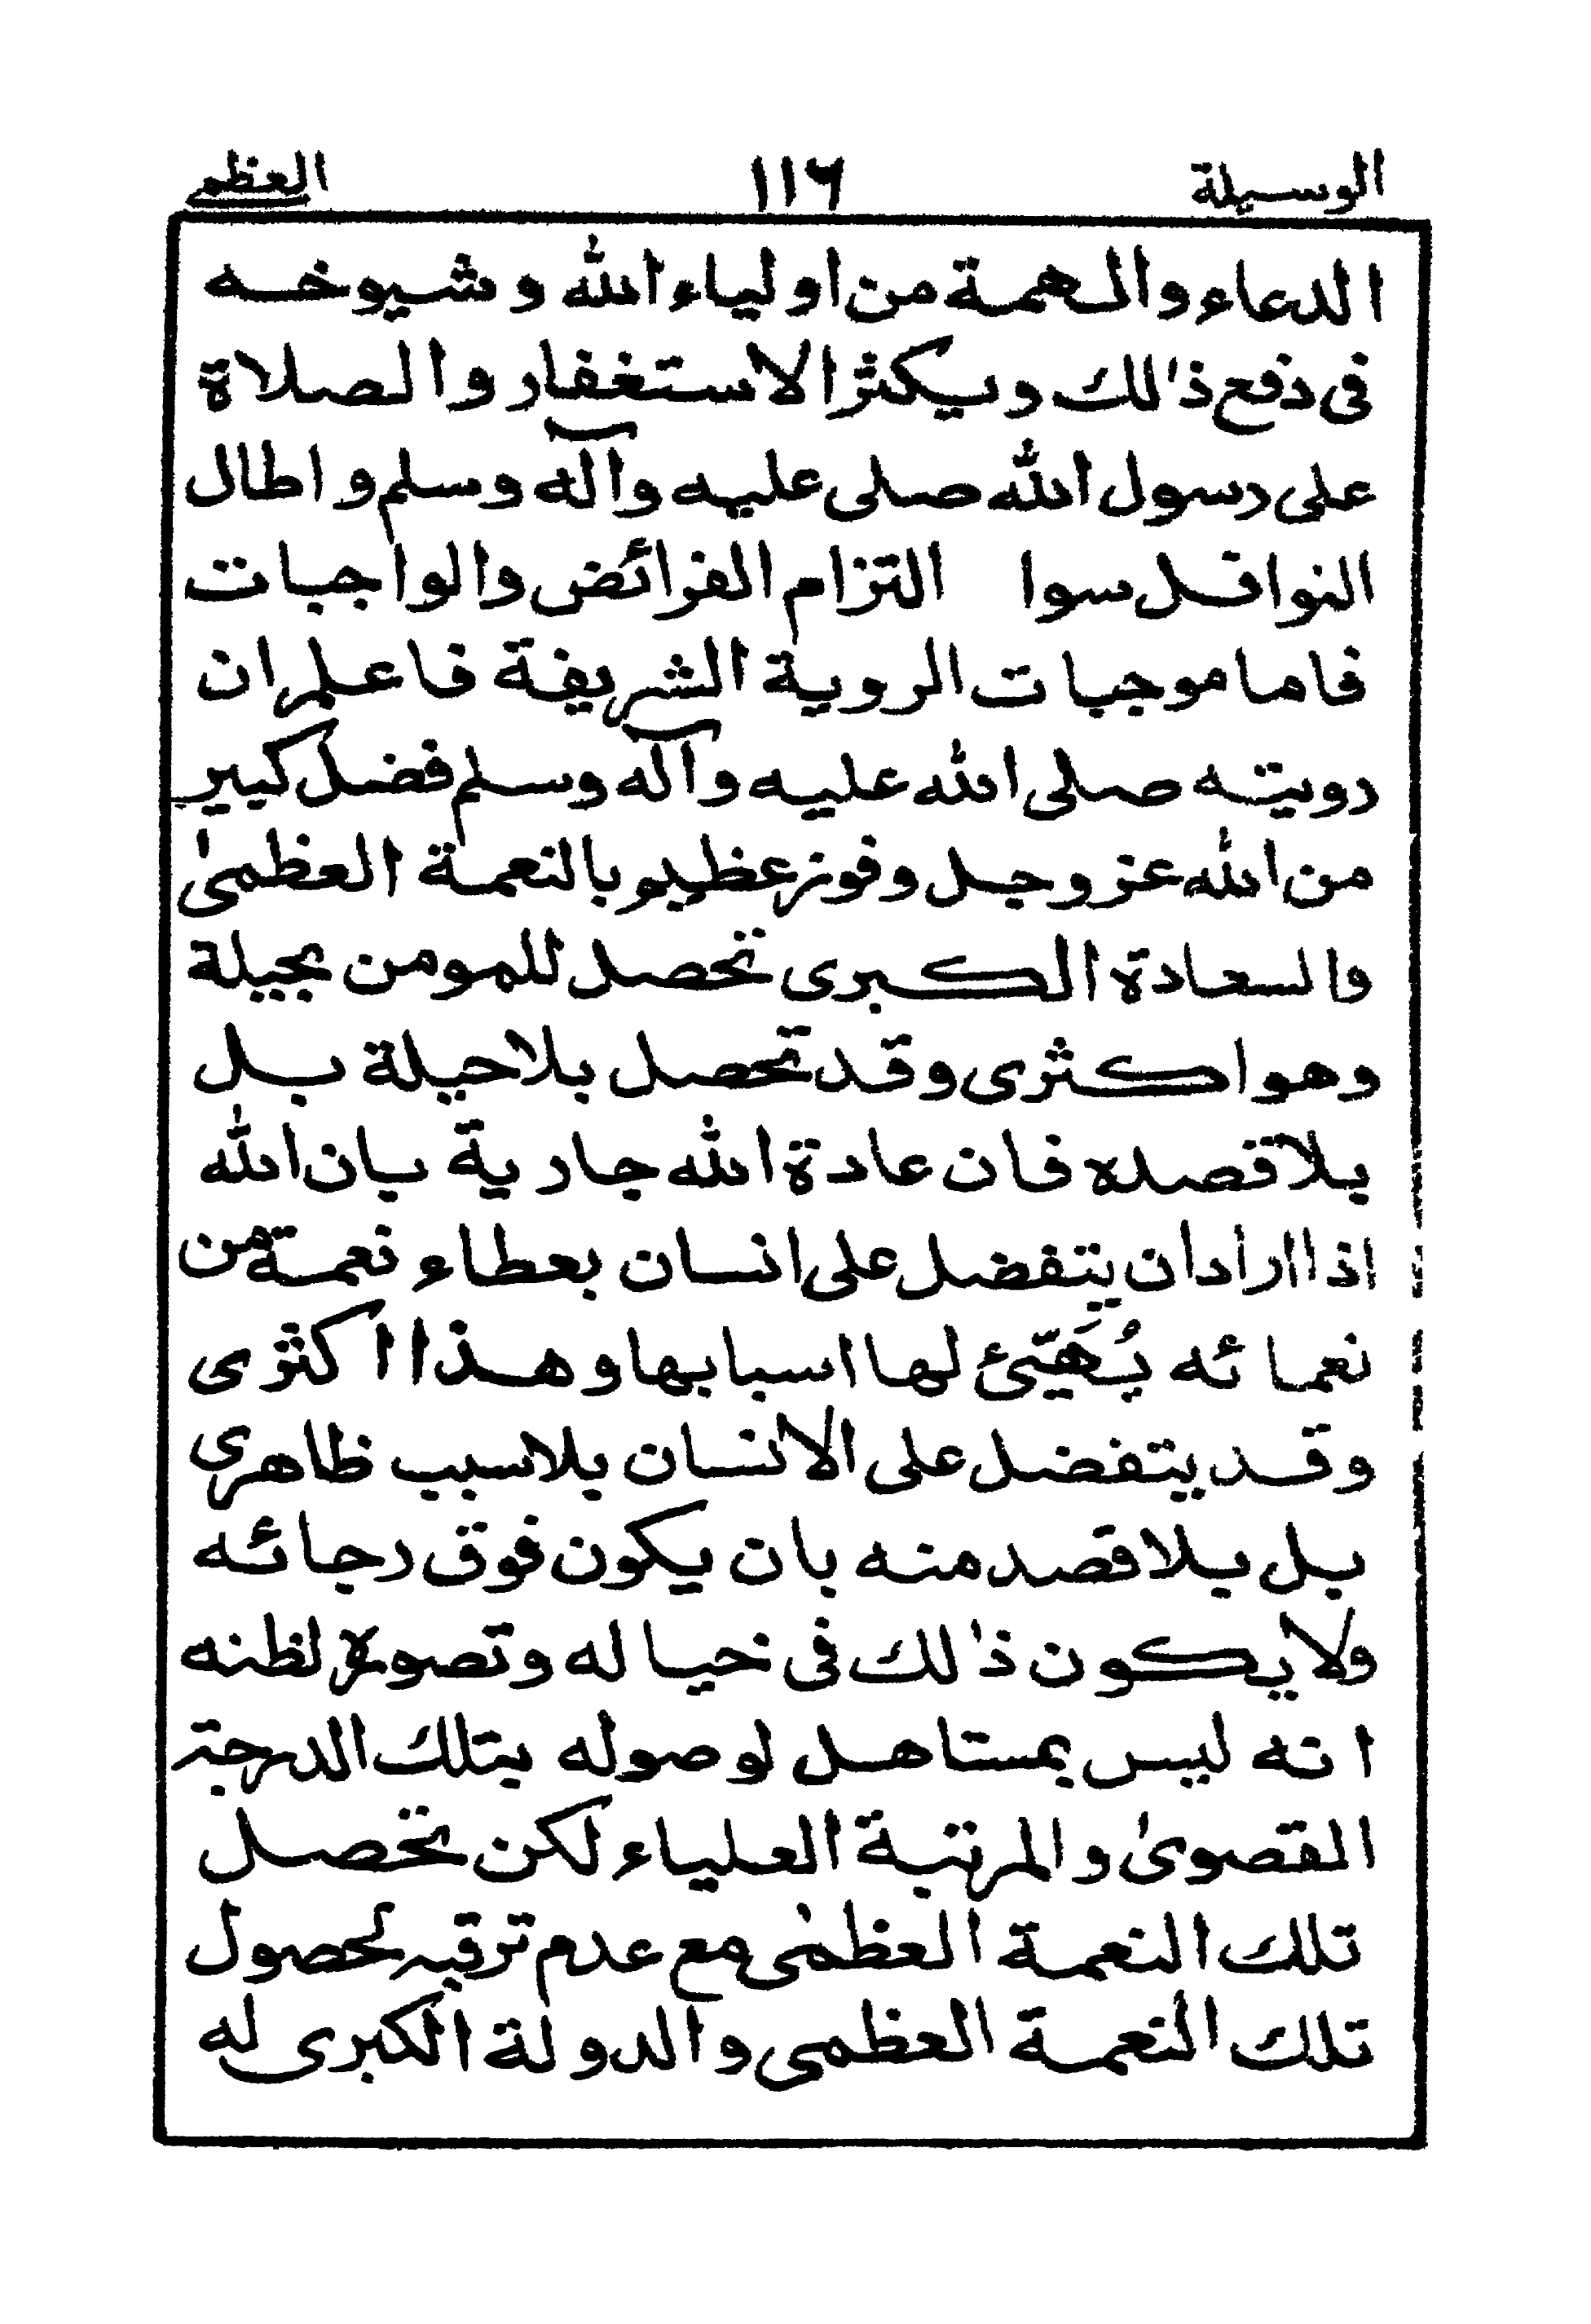 الوسيلة ١١٦ العظمى
الدعاء والهمة من اولياء الله و شيوخه
فى دفع ذٰلك ويكثر الاستغفار والصلاة
على رسول الله صلى عليه وآله وسلم و اطال
النوافل سوا التزام الفرائض والواجبات
فاما موجبات الروية الشريفة فاعلم ان
رويته صلى الله عليه وآله وسلم فضل كبير
من الله عز وجل وفوز عظيم بالنعمة العظمىٰ
والسعادة الكبرى تحصل للمومن بحيلة
وهو اكثرى وقد تحصل بلا حيلة بل
بلا قصده فان عادة الله جارية بان الله
اذا اراد ان يتفضل على انسان بعطاء نعمة من
نعمائه يُهَيّئ لها اسبابها وهذا اكثرى
وقد يتفضل على الانسان بلا سبب ظاهرى
بل بلا قصد منه بان يكون فوق رجائه
ولا يكون ذٰلك فى خياله وتصوره لظنه
انه ليس بمستاهل لوصوله بتلك الدرجة
القصوىٰ والمرتبة العلياء لكن تحصل
تلك النعمة العظمٰى مع عدم ترقبه لحصول
تلك النعمة العظمى والدولة الكبرى له